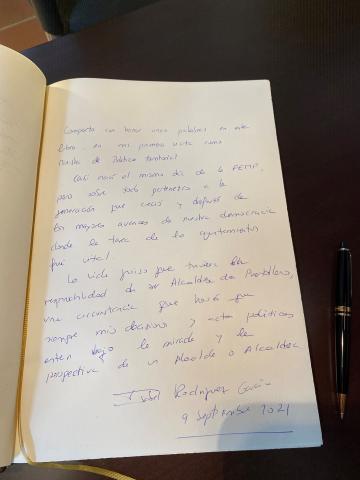 Comparto con honor unas palabras en este
libro, en mi primera visita como
Ministra de Política Territorial
Casi nací el mismo día de la FEMP,
pero sobre todo pertenezco a la
generación que creció y disfrutó de
los mayores avances de nuestra democracia
donde la tarea de los ayuntamientos
fue vital.
La vida quiso que tuviera la
responsabilidad de ser Alcaldesa de Puertollano,
una circunstancia que hará que
siempre mis decisiones y actos políticos
estén bajo la mirada y la
perspectiva de un Alcalde o Alcaldesa
Isabel Rodríguez García
9 septiembre 2021